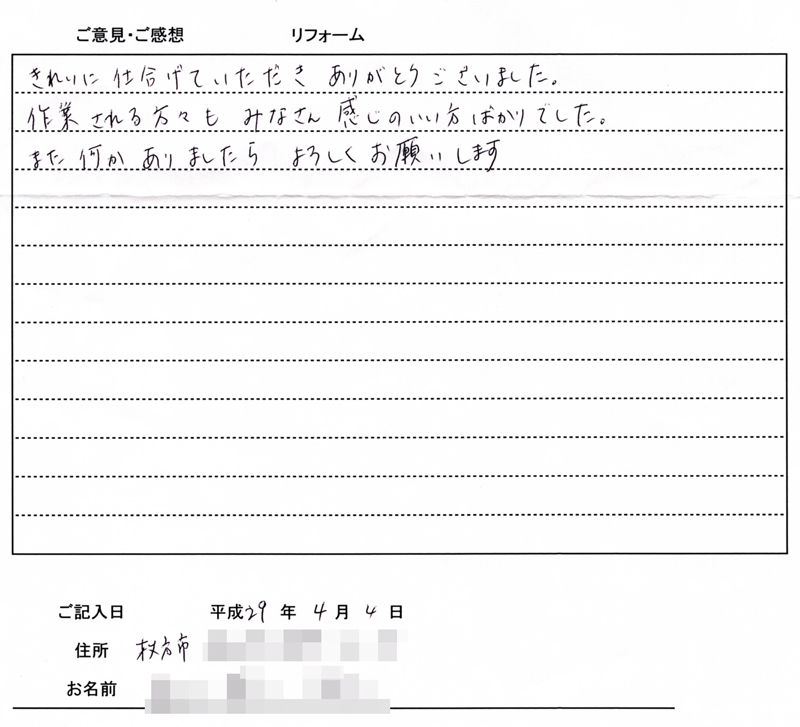 ご意見・ご感想 リフォーム
きれいに仕合げていただき ありがとうございました。
作業される方々も みなさん 感じのいい方ばかりでした。
また何かありましたら よろしくお願いします
ご記入日 平成29年4月4日
住所 枚方市
お名前